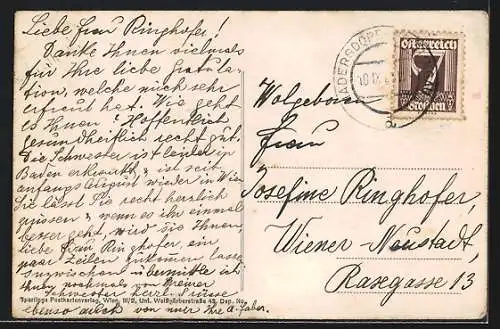 Liebe Frau Ringhofer!
Danke Ihnen vielmals
für Ihre liebe Gratula-
tion, welche mich sehr
erfreut hat. Wie geht
es Ihnen? Hoffentlich
gesundheitlich recht gut.
Die Schwester ist leider in
Baden erkrankt, ist seit
anfangs August wieder in Wien
Sie lässt Sie recht herzlich
grüssen, wenn es ihr einmal
besser geht, wird sie Ihnen,
liebe Frau Ringhofer, ein
paar Zeilen zukommen lassen
Inzwischen übermittle ich
Ihnen nochmals von meiner
Schwester herzl. Grüsse
ebenso auch von mir Ihre
Sperlings Postkartenverlag, Wien, III/2, Unt. Weißgärberstraße 43. Dep. No.
ADERSDORF
Österreich
7
Groschen
Wolgeboren
Frau
Josefine Ringhofer,
Wiener-Neustadt,
Rasegasse 13